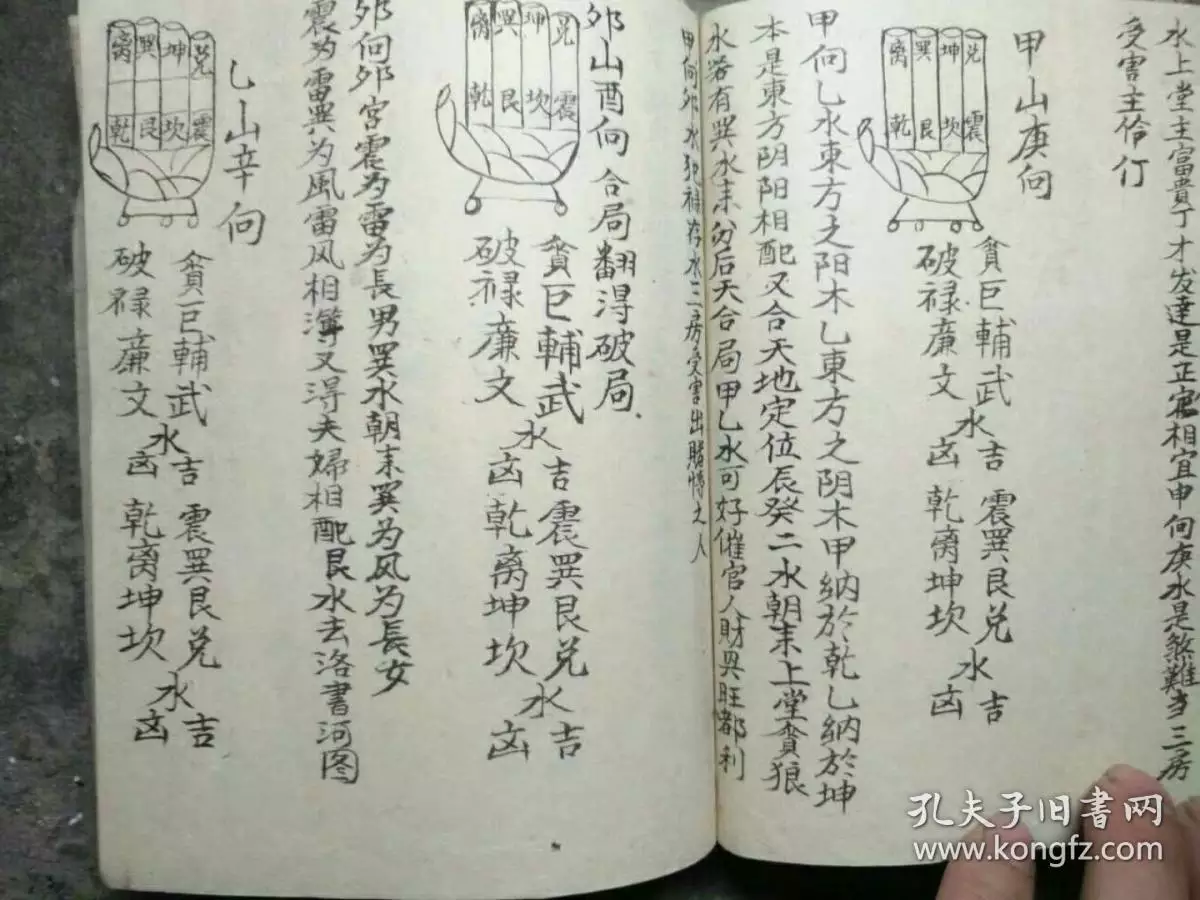 水上堂主富貴丁才发達是正官相宜申向庚水是煞難当三房
受害主伶仃
甲山庚向
兑 坤 巽 离
震 坎 艮 乾
貪巨輔武
破禄廉文
水
吉
凶
震巽艮兑
乾离坤坎
水
吉
凶
甲向乙水東方之阳木乙東方之阴木甲納於乾乙納於坤
本是東方阴阳相配又合天地定位辰癸二水朝来上堂貪狼
水若有巽水来分后天合局甲乙水可好催官人財具旺都利
甲向卯水犯禄存水三房受害出賭博之人
卯山酉向 合局翻得破局
兑 坤 巽 离
震 坎 艮 乾
貪巨輔武
破禄廉文
水
吉
凶
震巽艮兑
乾离坤坎
水
吉
凶
卯向卯宫震为雷为長男巽水朝来巽为风为長女
震为雷巽为風雷风相薄又得夫婦相配艮水去洛書河图
乙山辛向
兑 坤 巽 离
震 坎 艮 乾
貪巨輔武
破禄廉文
水
吉
凶
震巽艮兑
乾离坤坎
水
吉
凶
孔夫子旧书网
www.kongfz.com